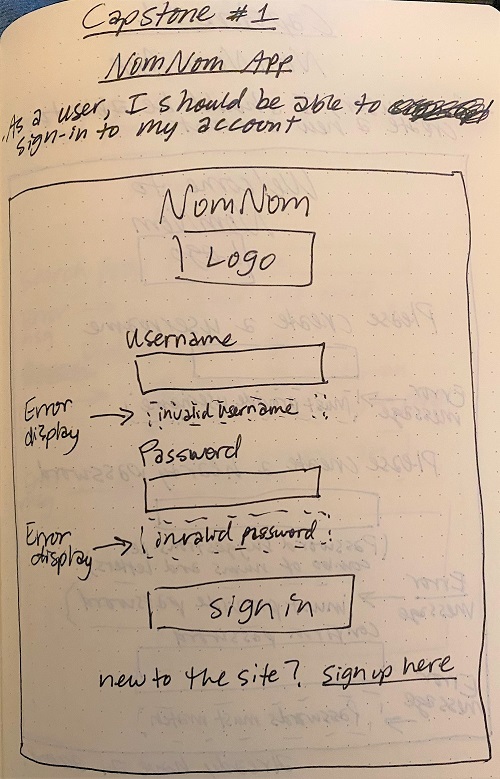 Capstone #1
NomNom App
As a user, I should be able to
sign-in to my account
NomNom
Logo
Username
Error
display
invalid username
Password
Error
display
invalid password
sign in
new to the site? sign up here